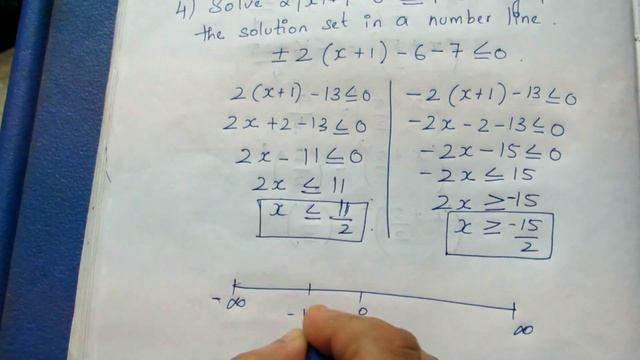 4) Solve 2|x+1|
the solution set in a number line.
± 2 (x+1) - 6 - 7 ≤ 0.
2(x+1) - 13 ≤ 0
2x + 2 - 13 ≤ 0
2x - 11 ≤ 0
2x ≤ 11
x ≤ 11/2
-2(x+1) - 13 ≤ 0
-2x - 2 - 13 ≤ 0
-2x - 15 ≤ 0
-2x ≤ 15
2x ≥ -15
x ≥ -15/2
-∞ -1 0 ∞